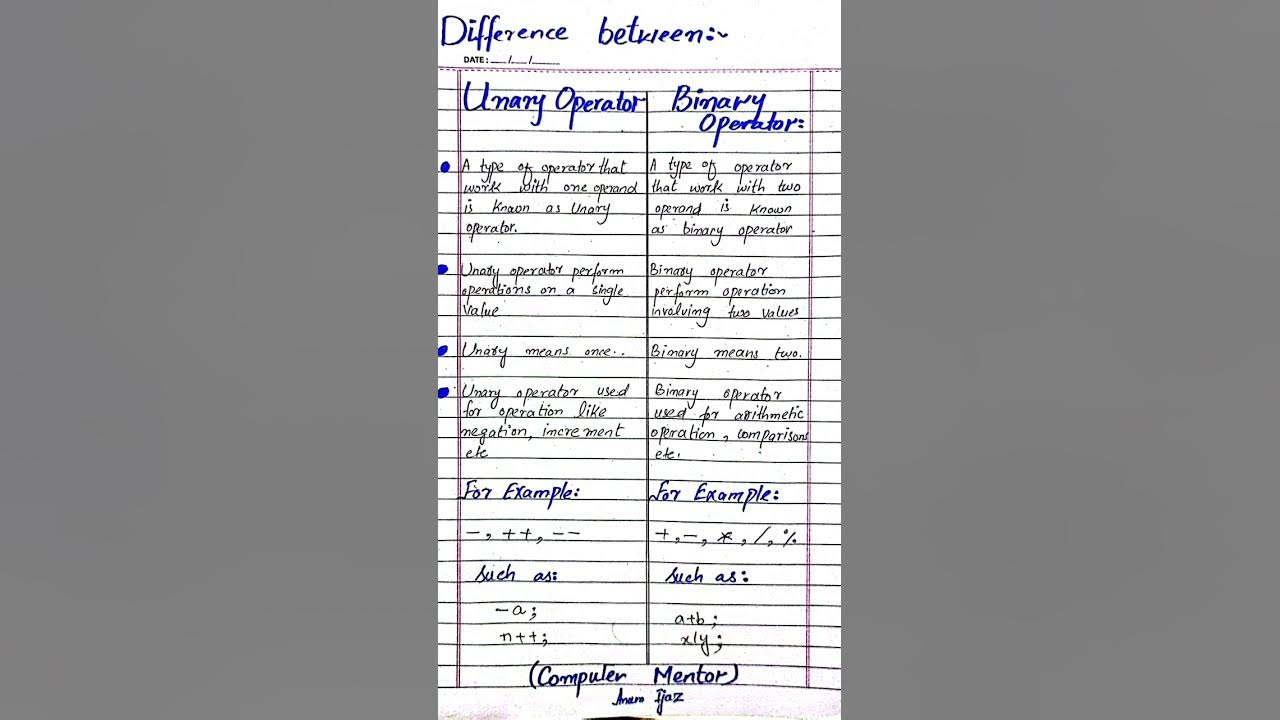 Difference between:~
DATE: __/__/____
Unary Operator
A type of operator that
work with one operand
is known as Unary
operator.
Unary operator perform
operations on a single
value
Unary means once..
Unary operator used
for operation like
negation, increment
etc
For Example:
-, ++, --
Such as:
-a;
n++;
Binary
Operator:
A type of operator
that work with two
operand is known
as binary operator
Binary operator
perform operation
involving two values
Binary means two.
Binary operator
used for arithmetic
operation, comparisons
etc.
For Example:
+, -, *, /, %
Such as:
a+b;
x/y;
(Computer Mentor)
Ijaz